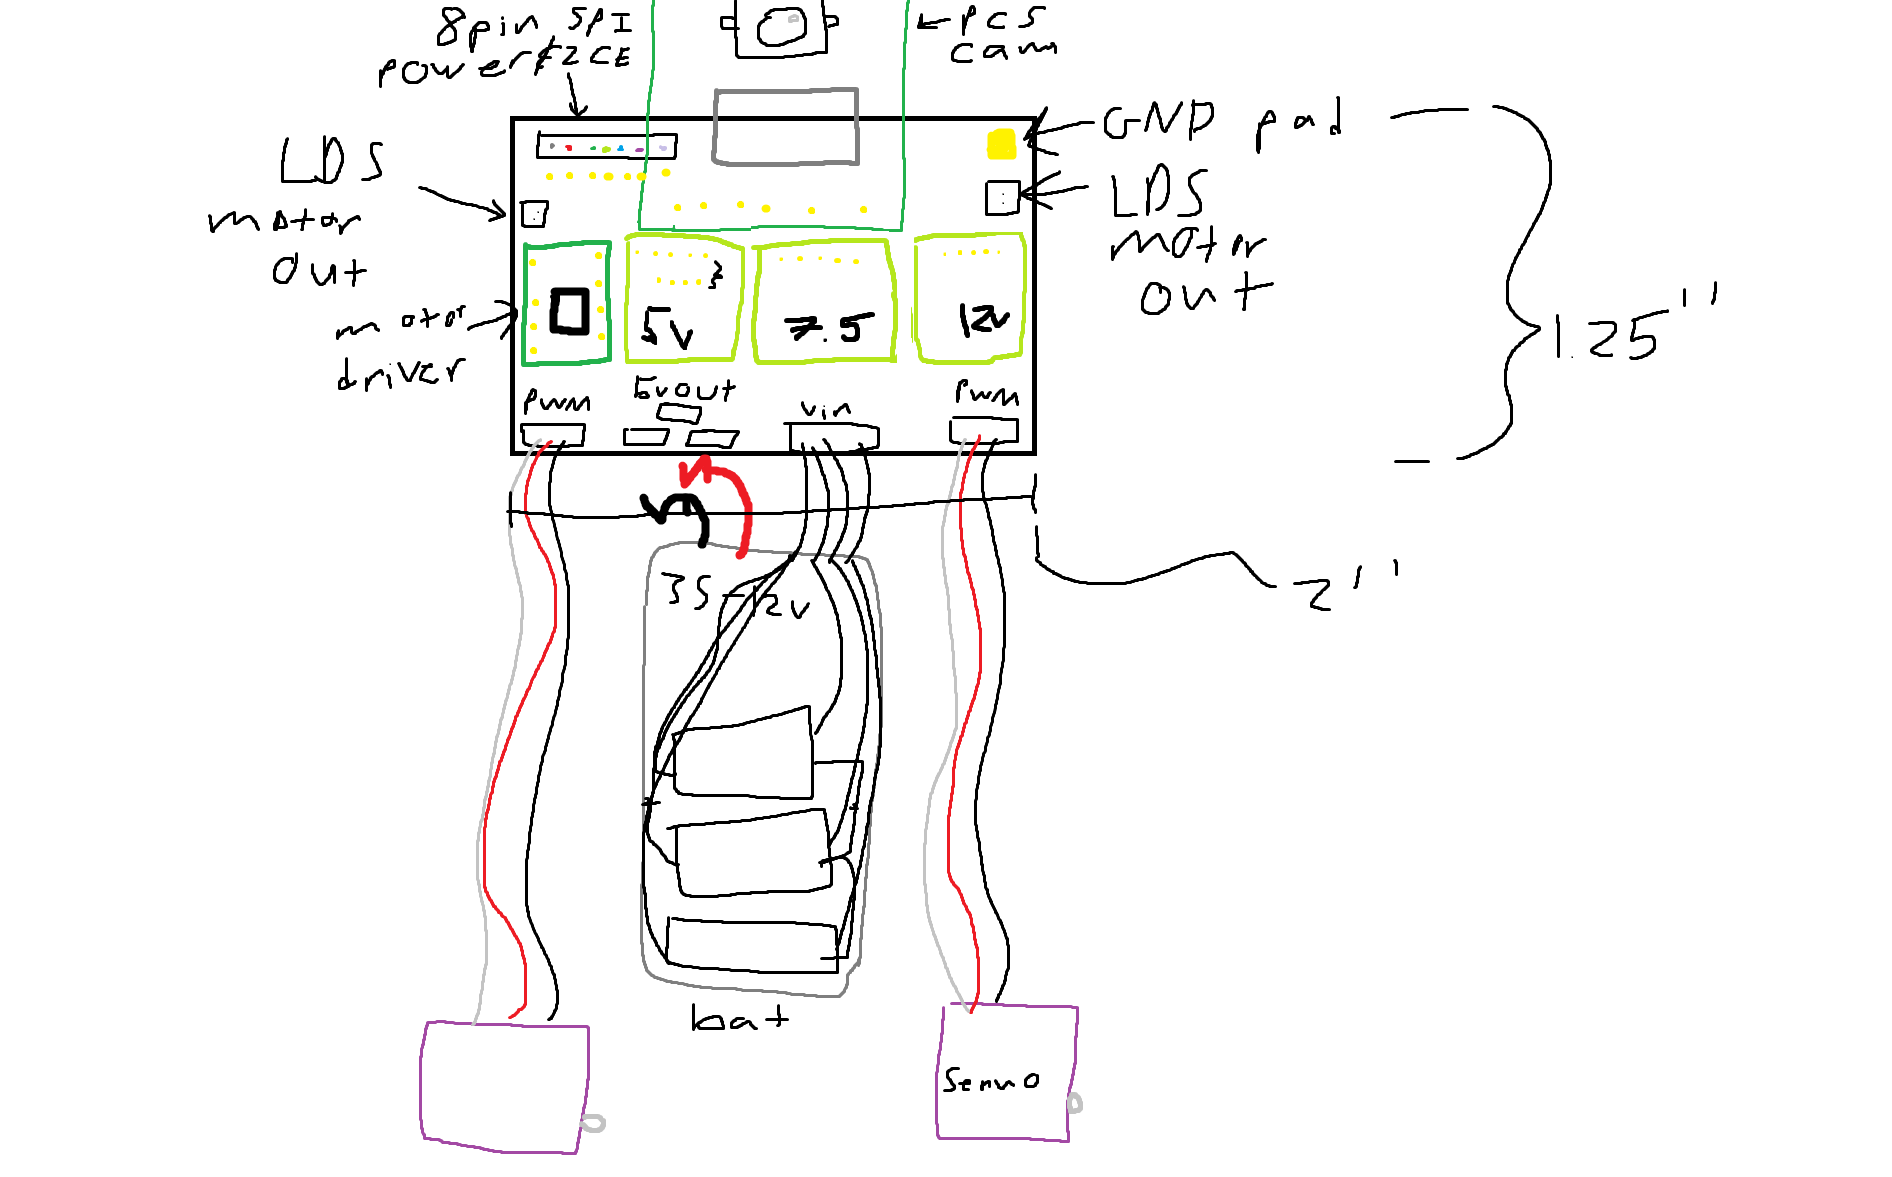 8pin SPI
power & 2 CE
PCS
cam
GND pad
LDS
motor
out
LDS
motor
out
1.25''
motor
driver
5V
7.5
12v
PWM
5vout
vin
PWM
2''
3S-12v
bat
Servo